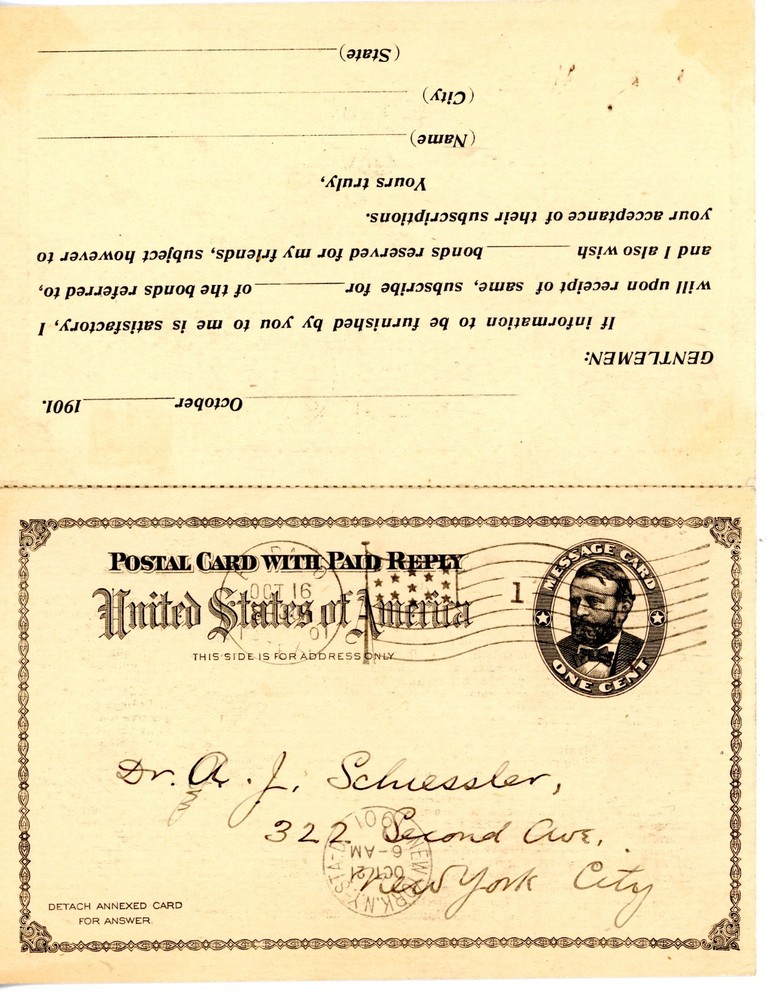 October __________ 1901.
GENTLEMEN:
If information to be furnished by you to me is satisfactory, I
will upon receipt of same, subscribe for __________ of the bonds referred to,
and I also wish __________ bonds reserved for my friends, subject however to
your acceptance of their subscriptions.
Yours truly,
(Name)
(City)
(State)
POSTAL CARD WITH PAID REPLY
United States of America
THIS SIDE IS FOR ADDRESS ONLY
1
MESSAGE CARD
ONE CENT
Dr. A. J. Schiessler,
322 Second Ave.
New York City
NEW YORK, N.Y. STA
OCT 21
6-AM
1901
DETACH ANNEXED CARD
FOR ANSWER.